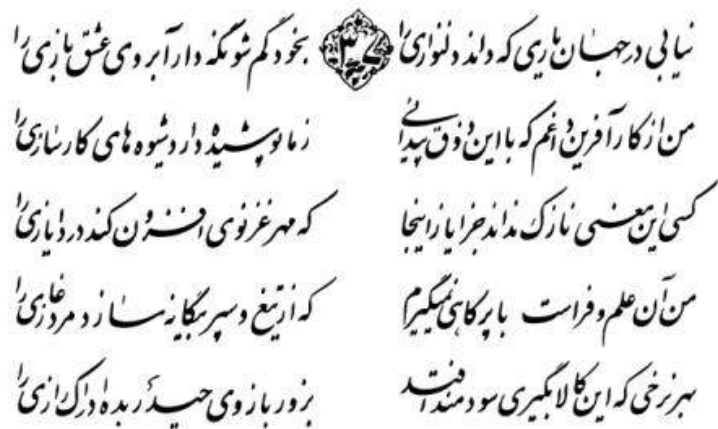 نیابی در جهان یاری که داند دلنوازی را بخود گم شو نگه دار آبروی عشق بازی را
من از کار آفرین داغم که با این ذوق پیدائی ز ما پوشیده دارد شیوه های کارسازی را
کسی این معنی نازک نداند جز ایاز اینجا که مهر غزنوی افزون کند درد ایازی را
من آن علم و فراست با پر کاهی نمیگیرم که از تیغ و سپر بیگانه سازد مرد غازی را
بهر نرخی که این کالا بگیری سودمند افتد بزور بازوی حیدر بده ادراک رازی را